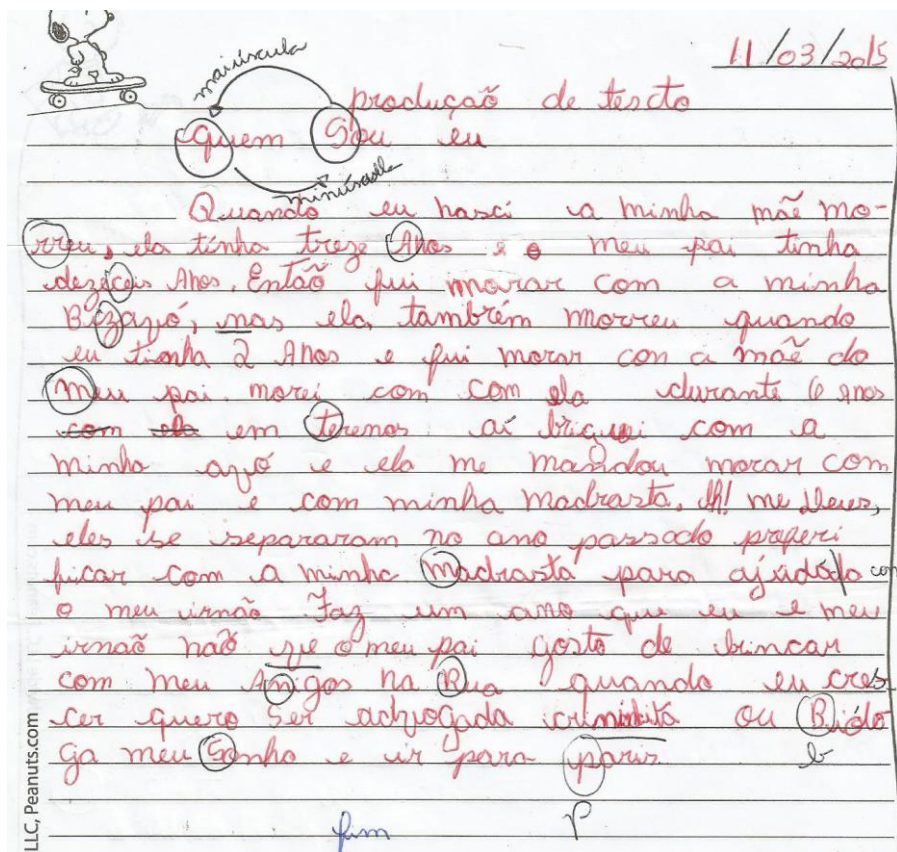 11/03/2015
maiúscula
produção de texcto
quem Sou eu
minúscula
Quando eu nasci a minha mãe mo-
rreu, ela tinha treze Anos e o meu pai tinha
dezeceis Anos. Então fui morar com a minha
Bizavó, mas ela também morreu quando
eu tinha 2 Anos e fui morar con a mãe do
meu pai. morei com com ela durante 6 anos
com ela em terenos. aí briguei com a
minha avó e ela me mandou morar com
meu pai e com minha madrasta. Ah! me Deus,
eles se separaram no ano passado preferi
ficar com a minha Madrasta para ajudala con
o meu irmão Faz um ano que eu e meu
irmão não ve o meu pai gosto de brincar
com meu Anigos na Rua quando eu cres
cer quero ser advogada criminlita ou Biolo
ga meu Sonho e ir para paris
b
fim P
LLC, Peanuts.com